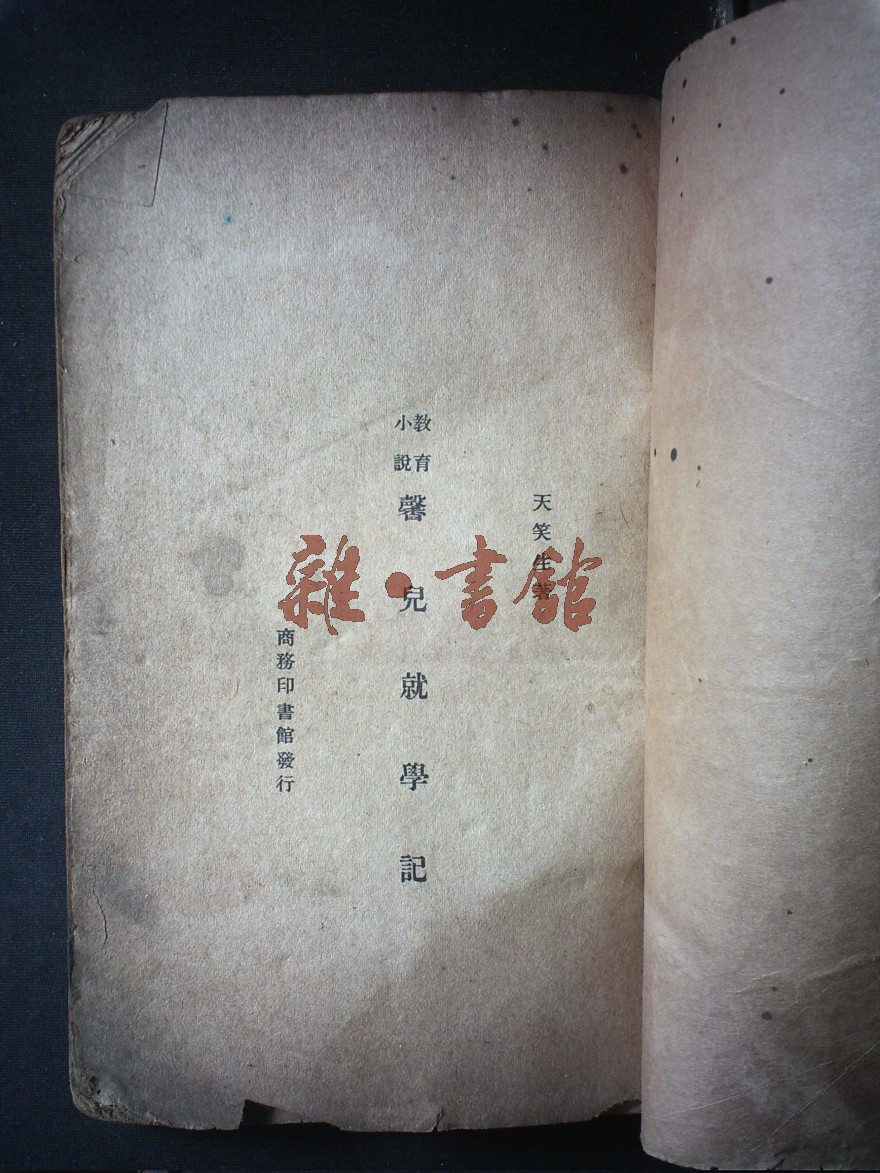 天笑生著
教育小說
馨兒就學記
商務印書館發行
雜·書館